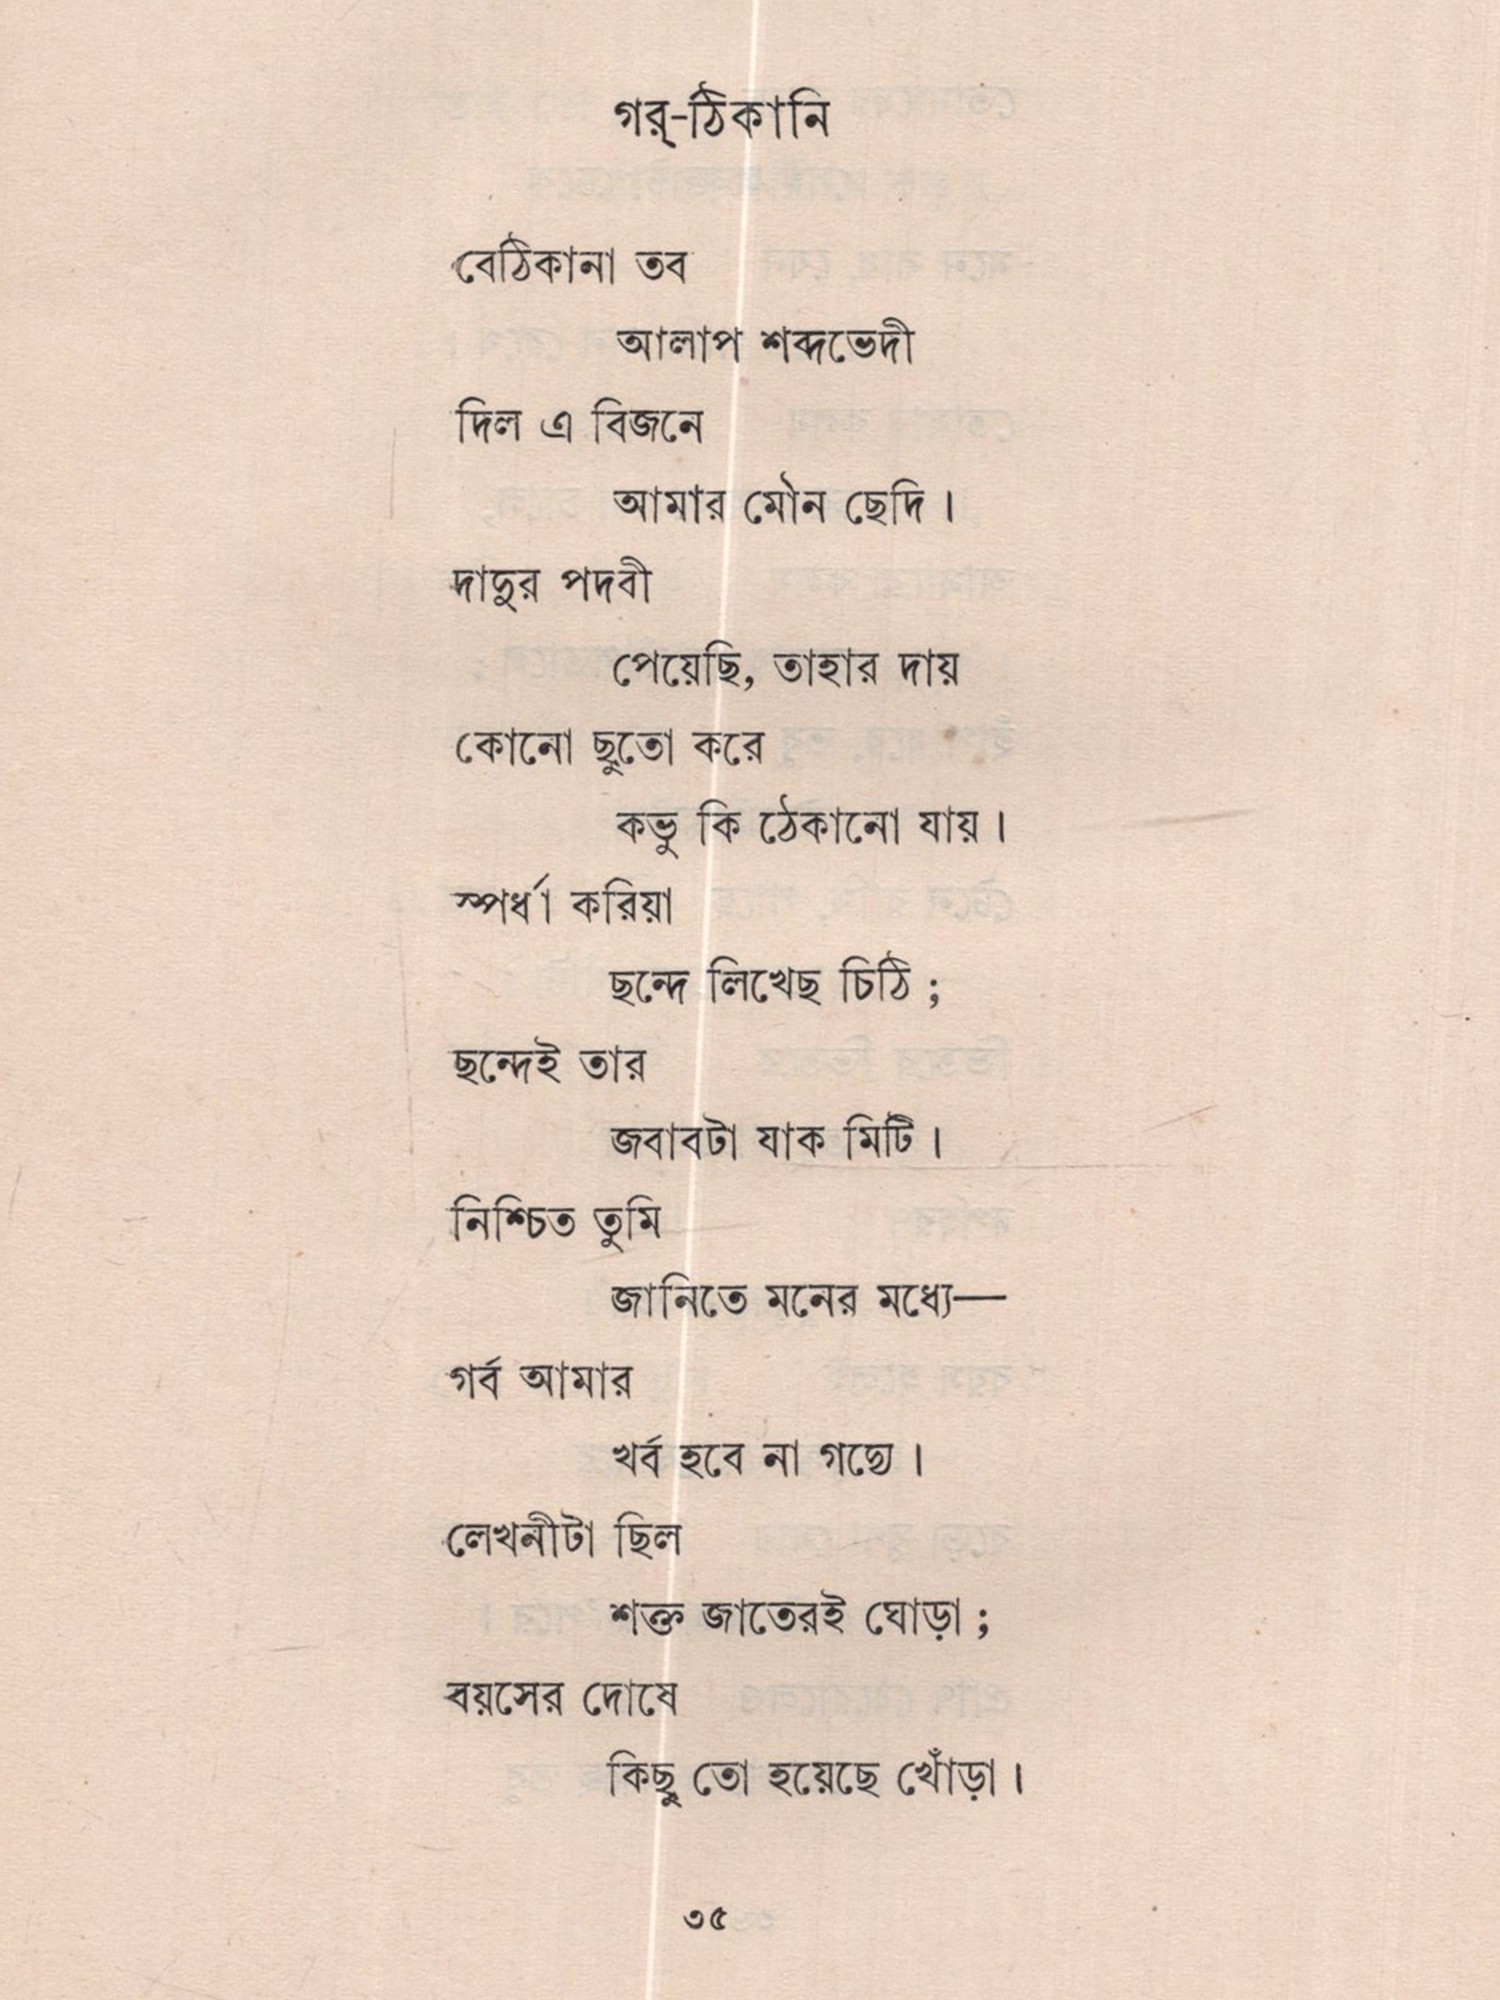 গর্‌-ঠিকানি
বেঠিকানা তব
আলাপ শব্দভেদী
দিল এ বিজনে
আমার মৌন ছেদি।
দাদুর পদবী
পেয়েছি, তাহার দায়
কোনো ছুতো করে
কভু কি ঠেকানো যায়।
স্পর্ধা করিয়া
ছন্দে লিখেছ চিঠি;
ছন্দেই তার
জবাবটা যাক মিটি।
নিশ্চিত তুমি
জানিতে মনের মধ্যে—
গর্ব আমার
খর্ব হবে না গদ্যে।
লেখনীটা ছিল
শক্ত জাতেরই ঘোড়া;
বয়সের দোষে
কিছু তো হয়েছে খোঁড়া।
৩৫